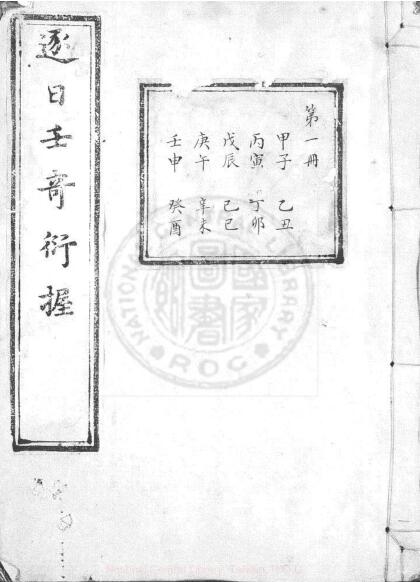 逐日壬奇衍握
第一冊
甲子 乙丑
丙寅 丁卯
戊辰 己巳
庚午 辛未
壬申 癸酉
NATIONAL CENTRAL LIBRARY
國家圖書館
ROC
National Central Library, Taiwan, R.O.C